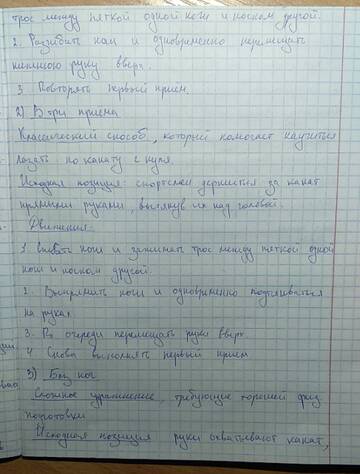 трос между пяткой одной ноги и носком другой.
2. Разгибать ноги и одновременно перемещать
нижнюю руку вверх.
3. Повторять первый прием.
2) В три приема
Классический способ, который помогает научиться
лазать по канату с нуля.
Исходная позиция: спортсмен держится за канат
прямыми руками, вытянув их над головой.
Движения:
1. сгибать ноги и зажимать трос между пяткой одной
ноги и носком другой.
2. Выпрямить ноги и одновременно подтягиваться
на руках
3. По очереди перемещать руки вверх.
4. Снова выполнять первый прием
3) Без ног
Сложное упражнение, требующее хорошей физ
подготовки
Исходная позиция руки охватывают канат,